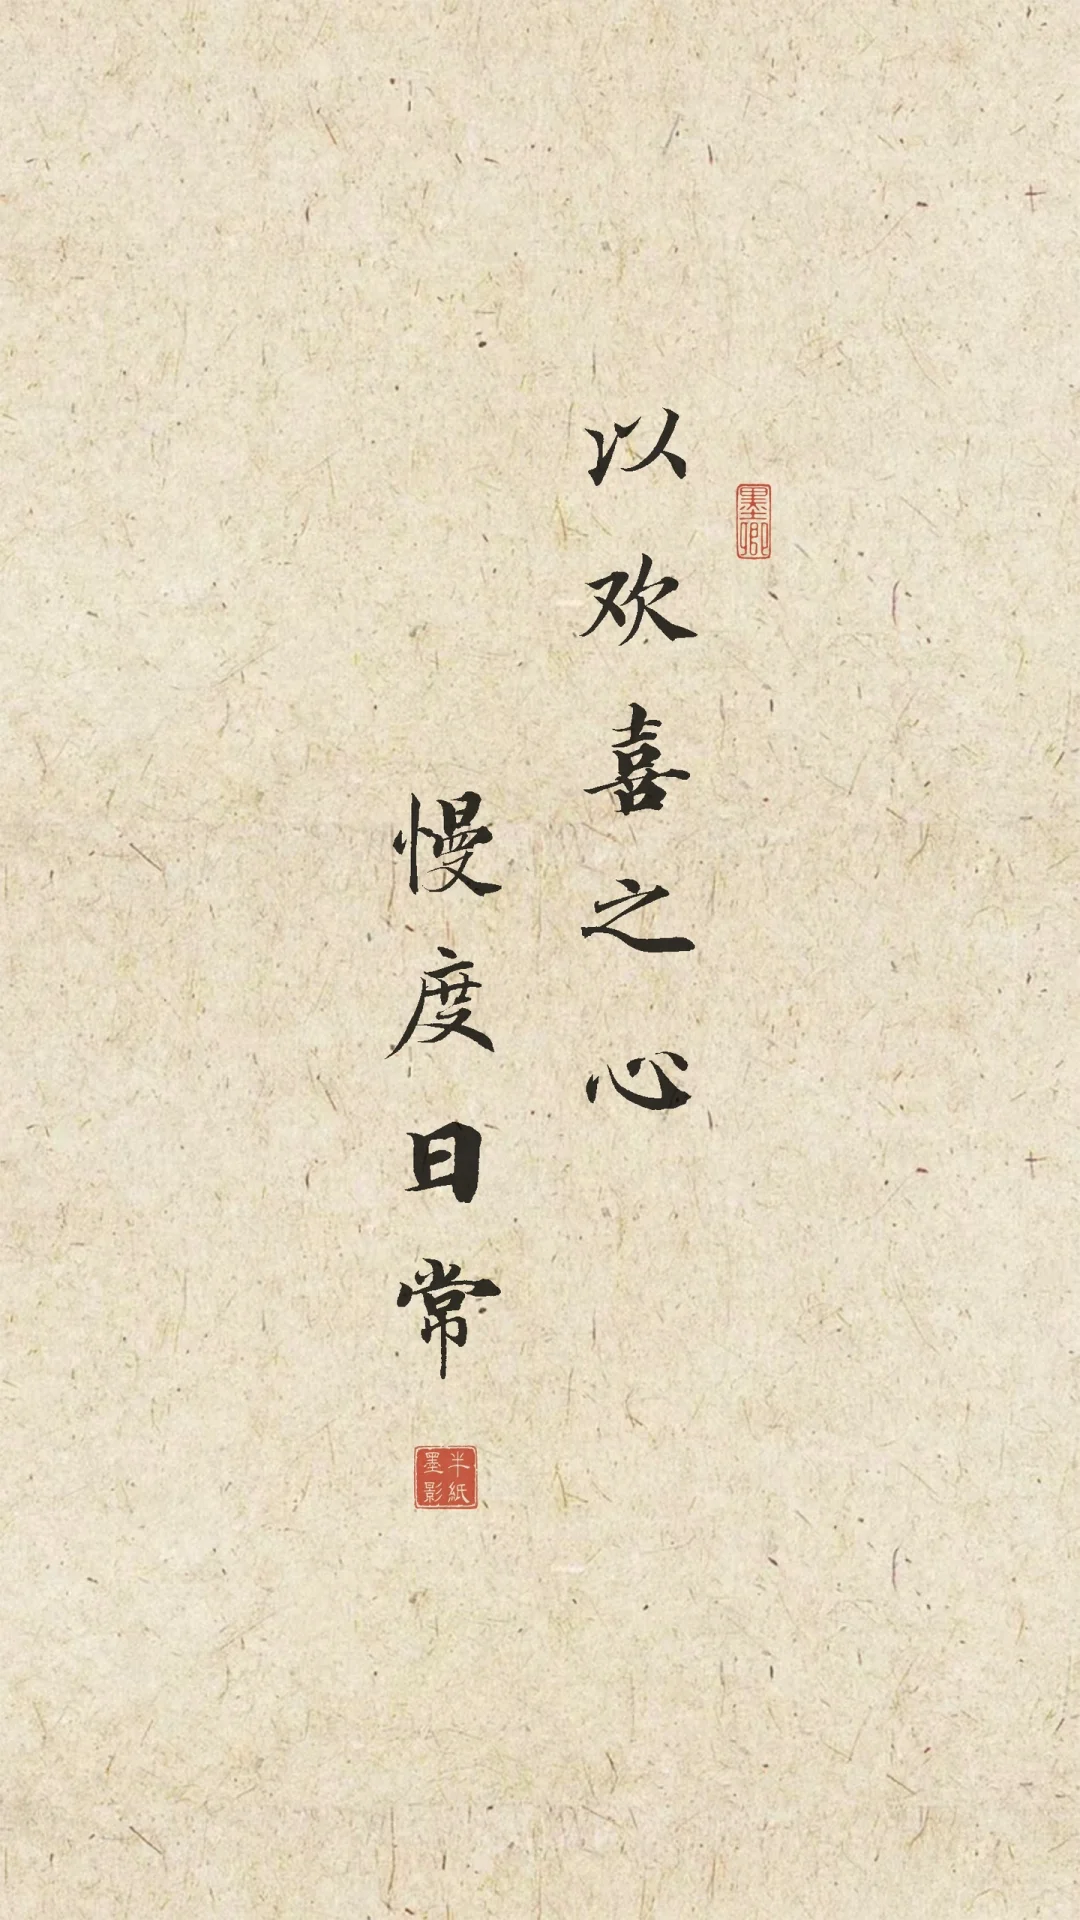 以欢喜之心
慢度日常
墨卿
半紙墨影